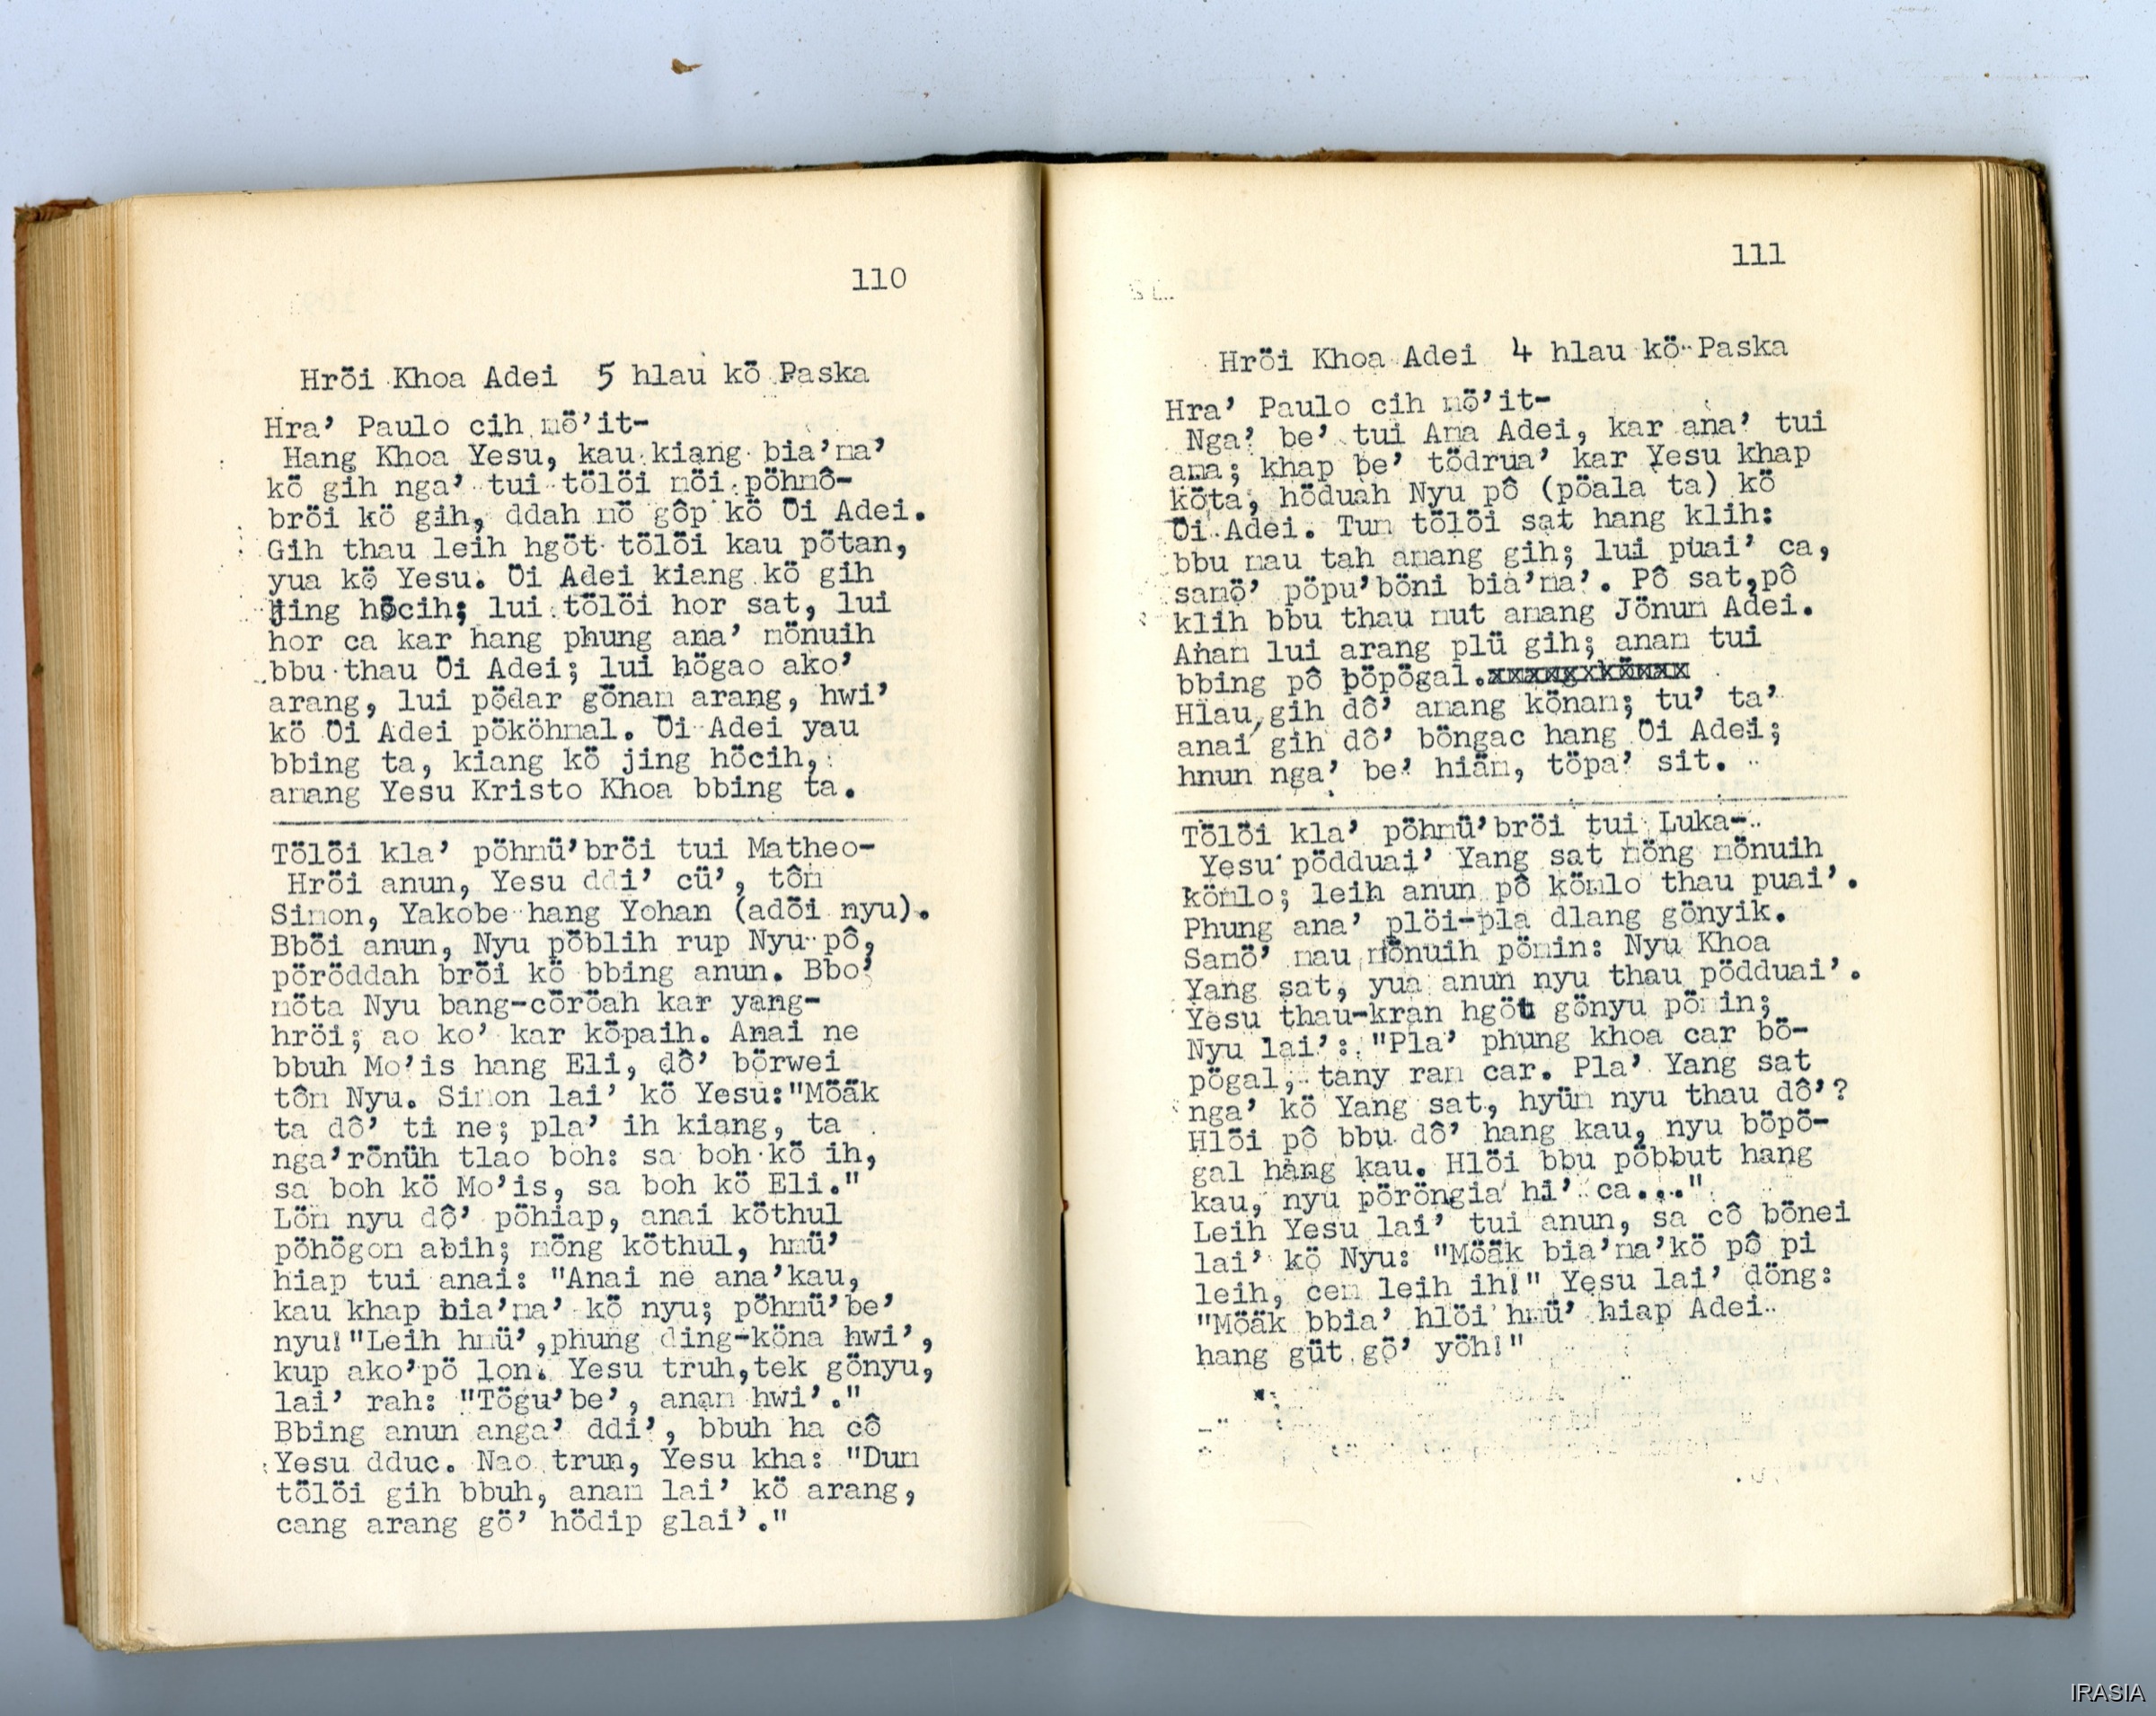 110
Hröi Khoa Adei 5 hlau kö Paska
Hra’ Paulo cih mö’it-
Hang Khoa Yesu, kau kiang bia’ma’
kö gih nga’ tui tölöi möi pöhmô-
bröi kö gih, ddah mö gôp kö Öi Adei.
Gih thau leih hgöt tölöi kau pötan,
yua kö Yesu. Öi Adei kiang kö gih
jing höcih; lui tölöi hor sat, lui
hor ca kar hang phung ana’ mönuih
bbu thau Öi Adei; lui högao ako’
arang, lui pödar gönam arang, hwi’
kö Öi Adei pököhmal. Öi Adei yau
bbing ta, kiang kö jing höcih,
amang Yesu Kristo Khoa bbing ta.
Tölöi kla’ pöhmü’bröi tui Matheo-
Hröi anun, Yesu ddi’ cü’, tôm
Simon, Yakobe hang Yohan (adöi nyu).
Bböi anun, Nyu pöblih rup Nyu pô,
pöröddah bröi kö bbing anun. Bbo’
möta Nyu bang-cöröah kar yang-
hröi; ao ko’ kar köpaih. Anai ne
bbuh Mo’is hang Eli, dô’ börwei
tôm Nyu. Simon lai’ kö Yesu:"Möäk
ta dô’ ti ne; pla’ ih kiang, ta
nga’rönüh tlao boh: sa boh kö ih,
sa boh kö Mo’is, sa boh kö Eli."
Löm nyu dô’ pöhiap, anai köthul
pöhögom abih; möng köthul, hmü’
hiap tui anai: "Anai ne ana’kau,
kau khap bia’ma’ kö nyu; pöhmü’be’
nyu!"Leih hmü’,phung ding-köna hwi’,
kup ako’pö lon. Yesu truh,tek gönyu,
lai’ rah: "Tögu’be’, anam hwi’."
Bbing anun anga’ ddi’, bbuh ha cô
Yesu dduc. Nao trun, Yesu kha: "Dum
tölöi gih bbuh, anam lai’ kö arang,
cang arang gö’ hödip glai’."
111
Hröi Khoa Adei 4 hlau kö Paska
Hra’ Paulo cih mö’it-
Nga’ be’ tui Ama Adei, kar ana’ tui
ama; khap be’ tödrua’ kar Yesu khap
köta, höduah Nyu pô (pöala ta) kö
Öi Adei. Tum tölöi sat hang klih:
bbu mau tah amang gih; lui puai’ ca,
samö’ pöpu’böni bia’ma’. Pô sat,pô
klih bbu thau mut amang Jönum Adei.
Anam lui arang plü gih; anam tui
bbing pô böpögal.
Hlau gih dô’ amang könam; tu’ ta’
anai gih dô’ böngac hang Öi Adei;
hnun nga’ be’ hiäm, töpa’ sit.
Tölöi kla’ pöhmü’bröi tui Luka-
Yesu pödduai’ Yang sat möng mönuih
kömlo; leih anun pô kömlo thau puai’.
Phung ana’ plöi-pla dlang gönyik.
Samö’ mau mönuih pömin: Nyu Khoa
Yang sat, yua anun nyu thau pödduai’.
Yesu thau-kran hgöt gönyu pömin;
Nyu lai’: "Pla’ phung khoa car bö-
pögal, tany ram car. Pla’ Yang sat
nga’ kö Yang sat, hyüm nyu thau dô’?
Hlöi pô bbu dô’ hang kau, nyu böpö-
gal hang kau. Hlöi bbu pöbbut hang
kau, nyu pöröngia hi’ ca..."
Leih Yesu lai’ tui anun, sa cô bönei
lai’ kö Nyu: "Möäk bia’ma’kö pô pi
leih, cem leih ih!" Yesu lai’ döng:
"Möäk bbia’ hlöi hmü’ hiap Adei
hang güt gö’ yöh!"
IRASIA